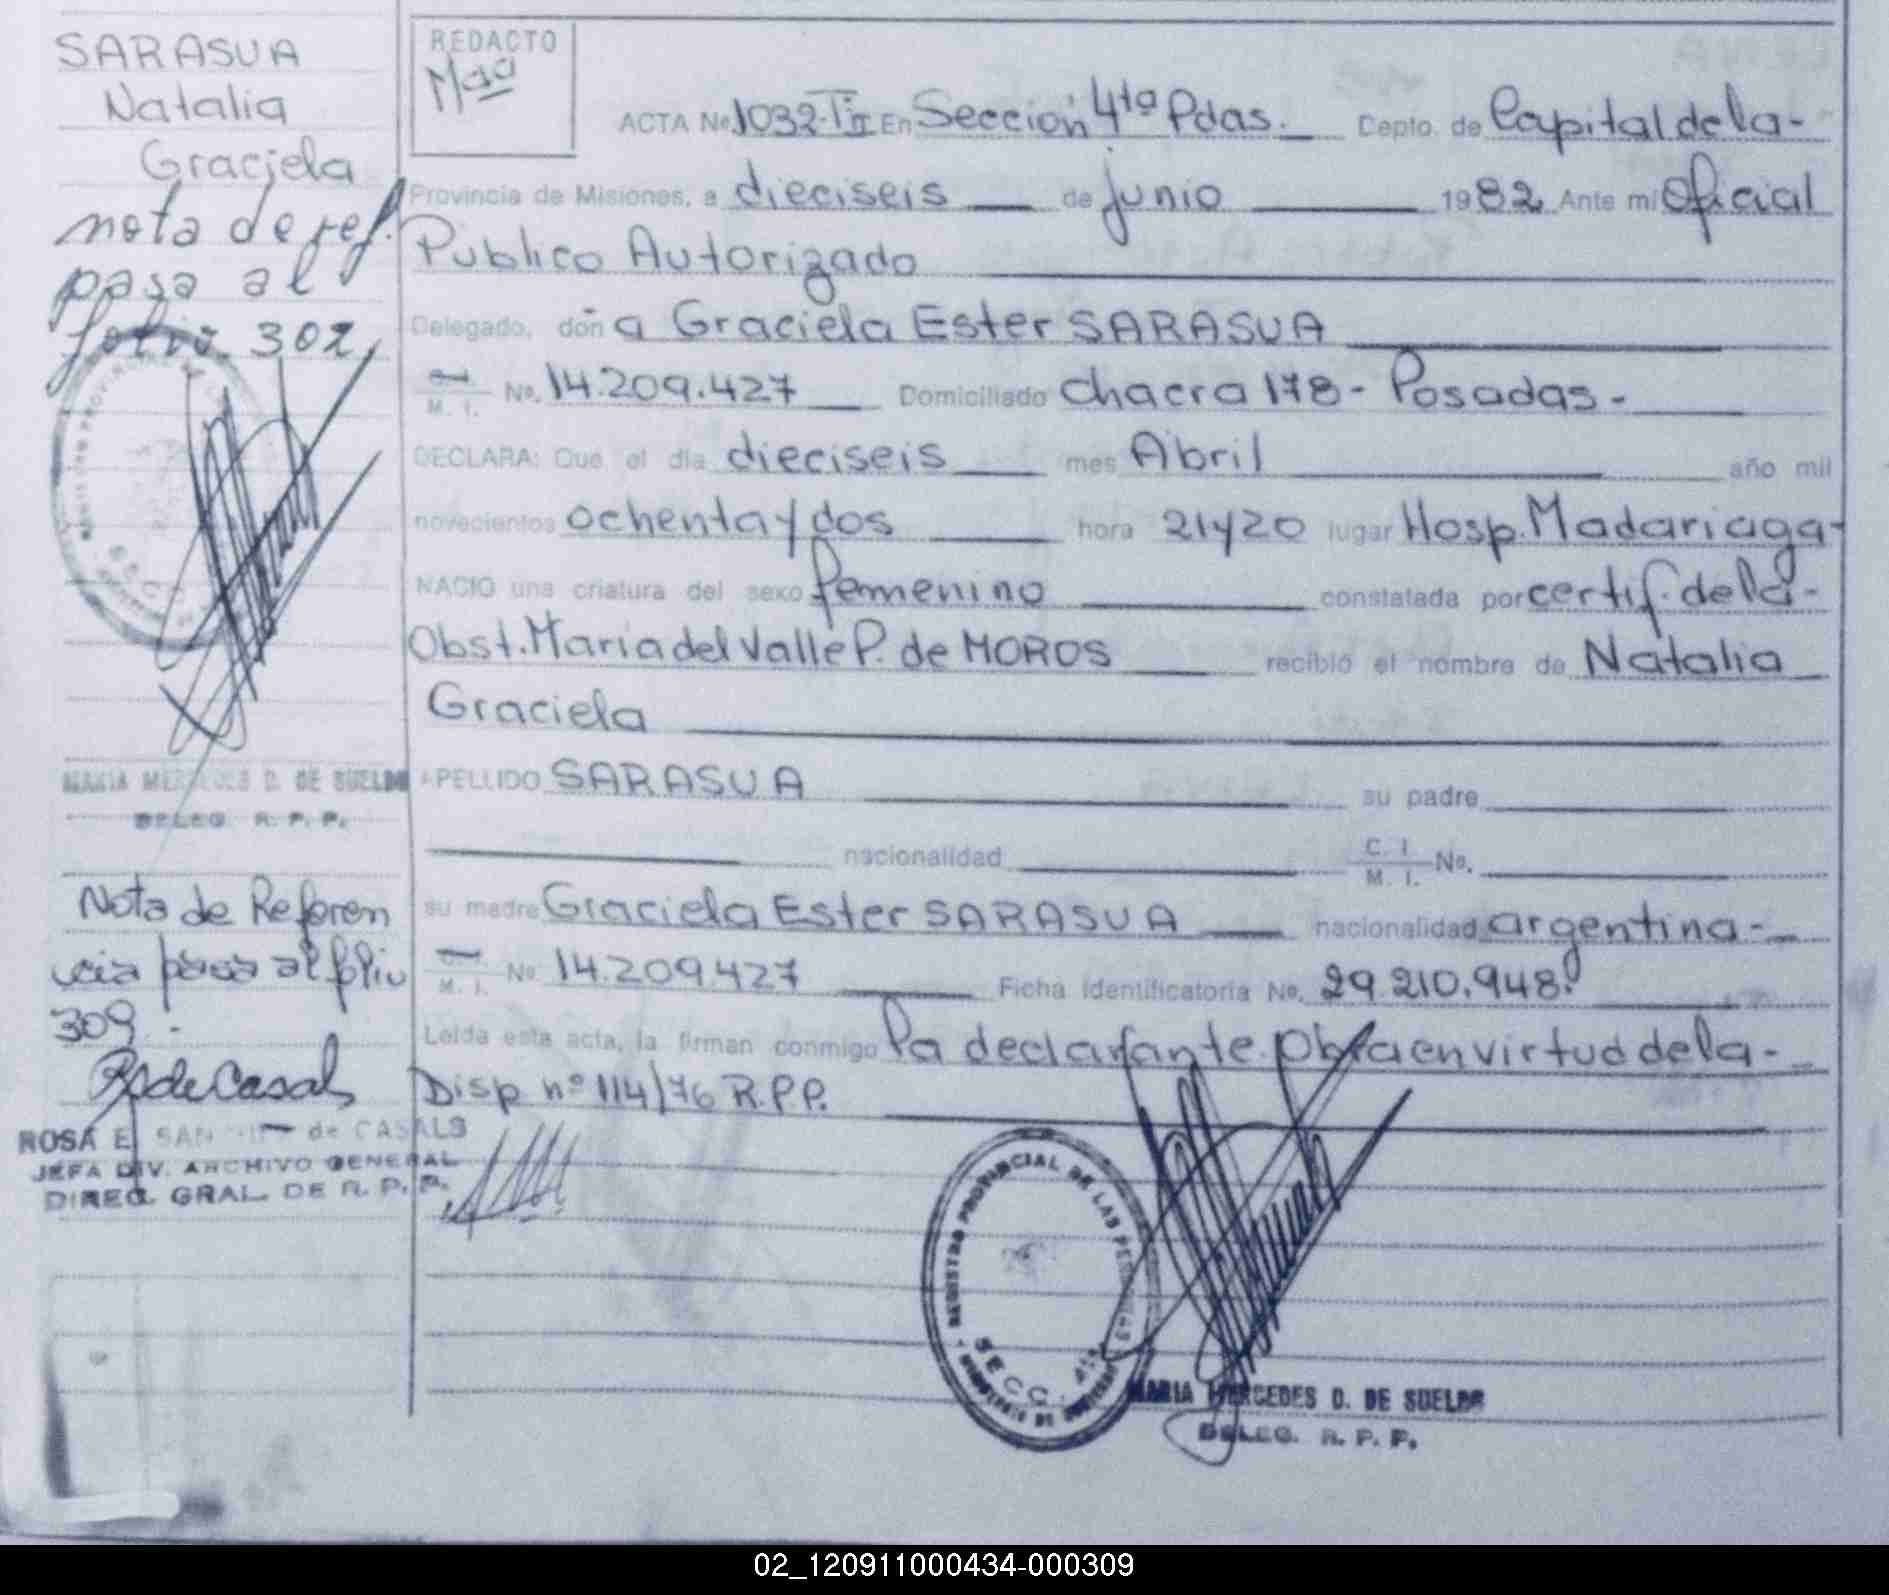 SARASUA
Natalia
Graciela
nota de ref.
pasa al
folio 302
MARIA MERCEDES D. DE SUELDO
DELEG. R. P. P.
Nota de Referen
cia pasa al folio
309.-
R S de Casals
ROSA E. SAN de CASALS
JEFA DIV. ARCHIVO GENERAL
DIREC. GRAL. DE R. P. P.
REDACTO
ACTA No 1032-TII En Sección 4ta Pdas. Depto. de Capital de la-
Provincia de Misiones, a dieciseis de junio 1982 Ante mi Oficial
Publico Autorizado
Delegado, doña Graciela Ester SARASUA
M. I. No. 14.209.427 Domiciliado Chacra 178- Posadas-
DECLARA: Que el día dieciseis mes Abril año mil
novecientos ochenta y dos hora 21y20 lugar Hosp. Madariaga-
NACIO una criatura del sexo femenino constatada por certif. de la-
Obst. Maria del Valle P. de MOROS recibió el nombre de Natalia
Graciela
APELLIDO SARASUA su padre
nacionalidad C. I. M. I. No.
su madre Graciela Ester SARASUA nacionalidad argentina-
M. I. No 14.209.427 Ficha Identificatoria No. 29.210.948.
Leída esta acta, la firman conmigo la declarante. Obra en virtud de la-
Disp nº 114/76 R.P.P.
REGISTRO PROVINCIAL DE LAS PERSONAS
SECC. 4ta
MARIA MERCEDES D. DE SUELDO
DELEG. R. P. P.
02_120911000434-000309